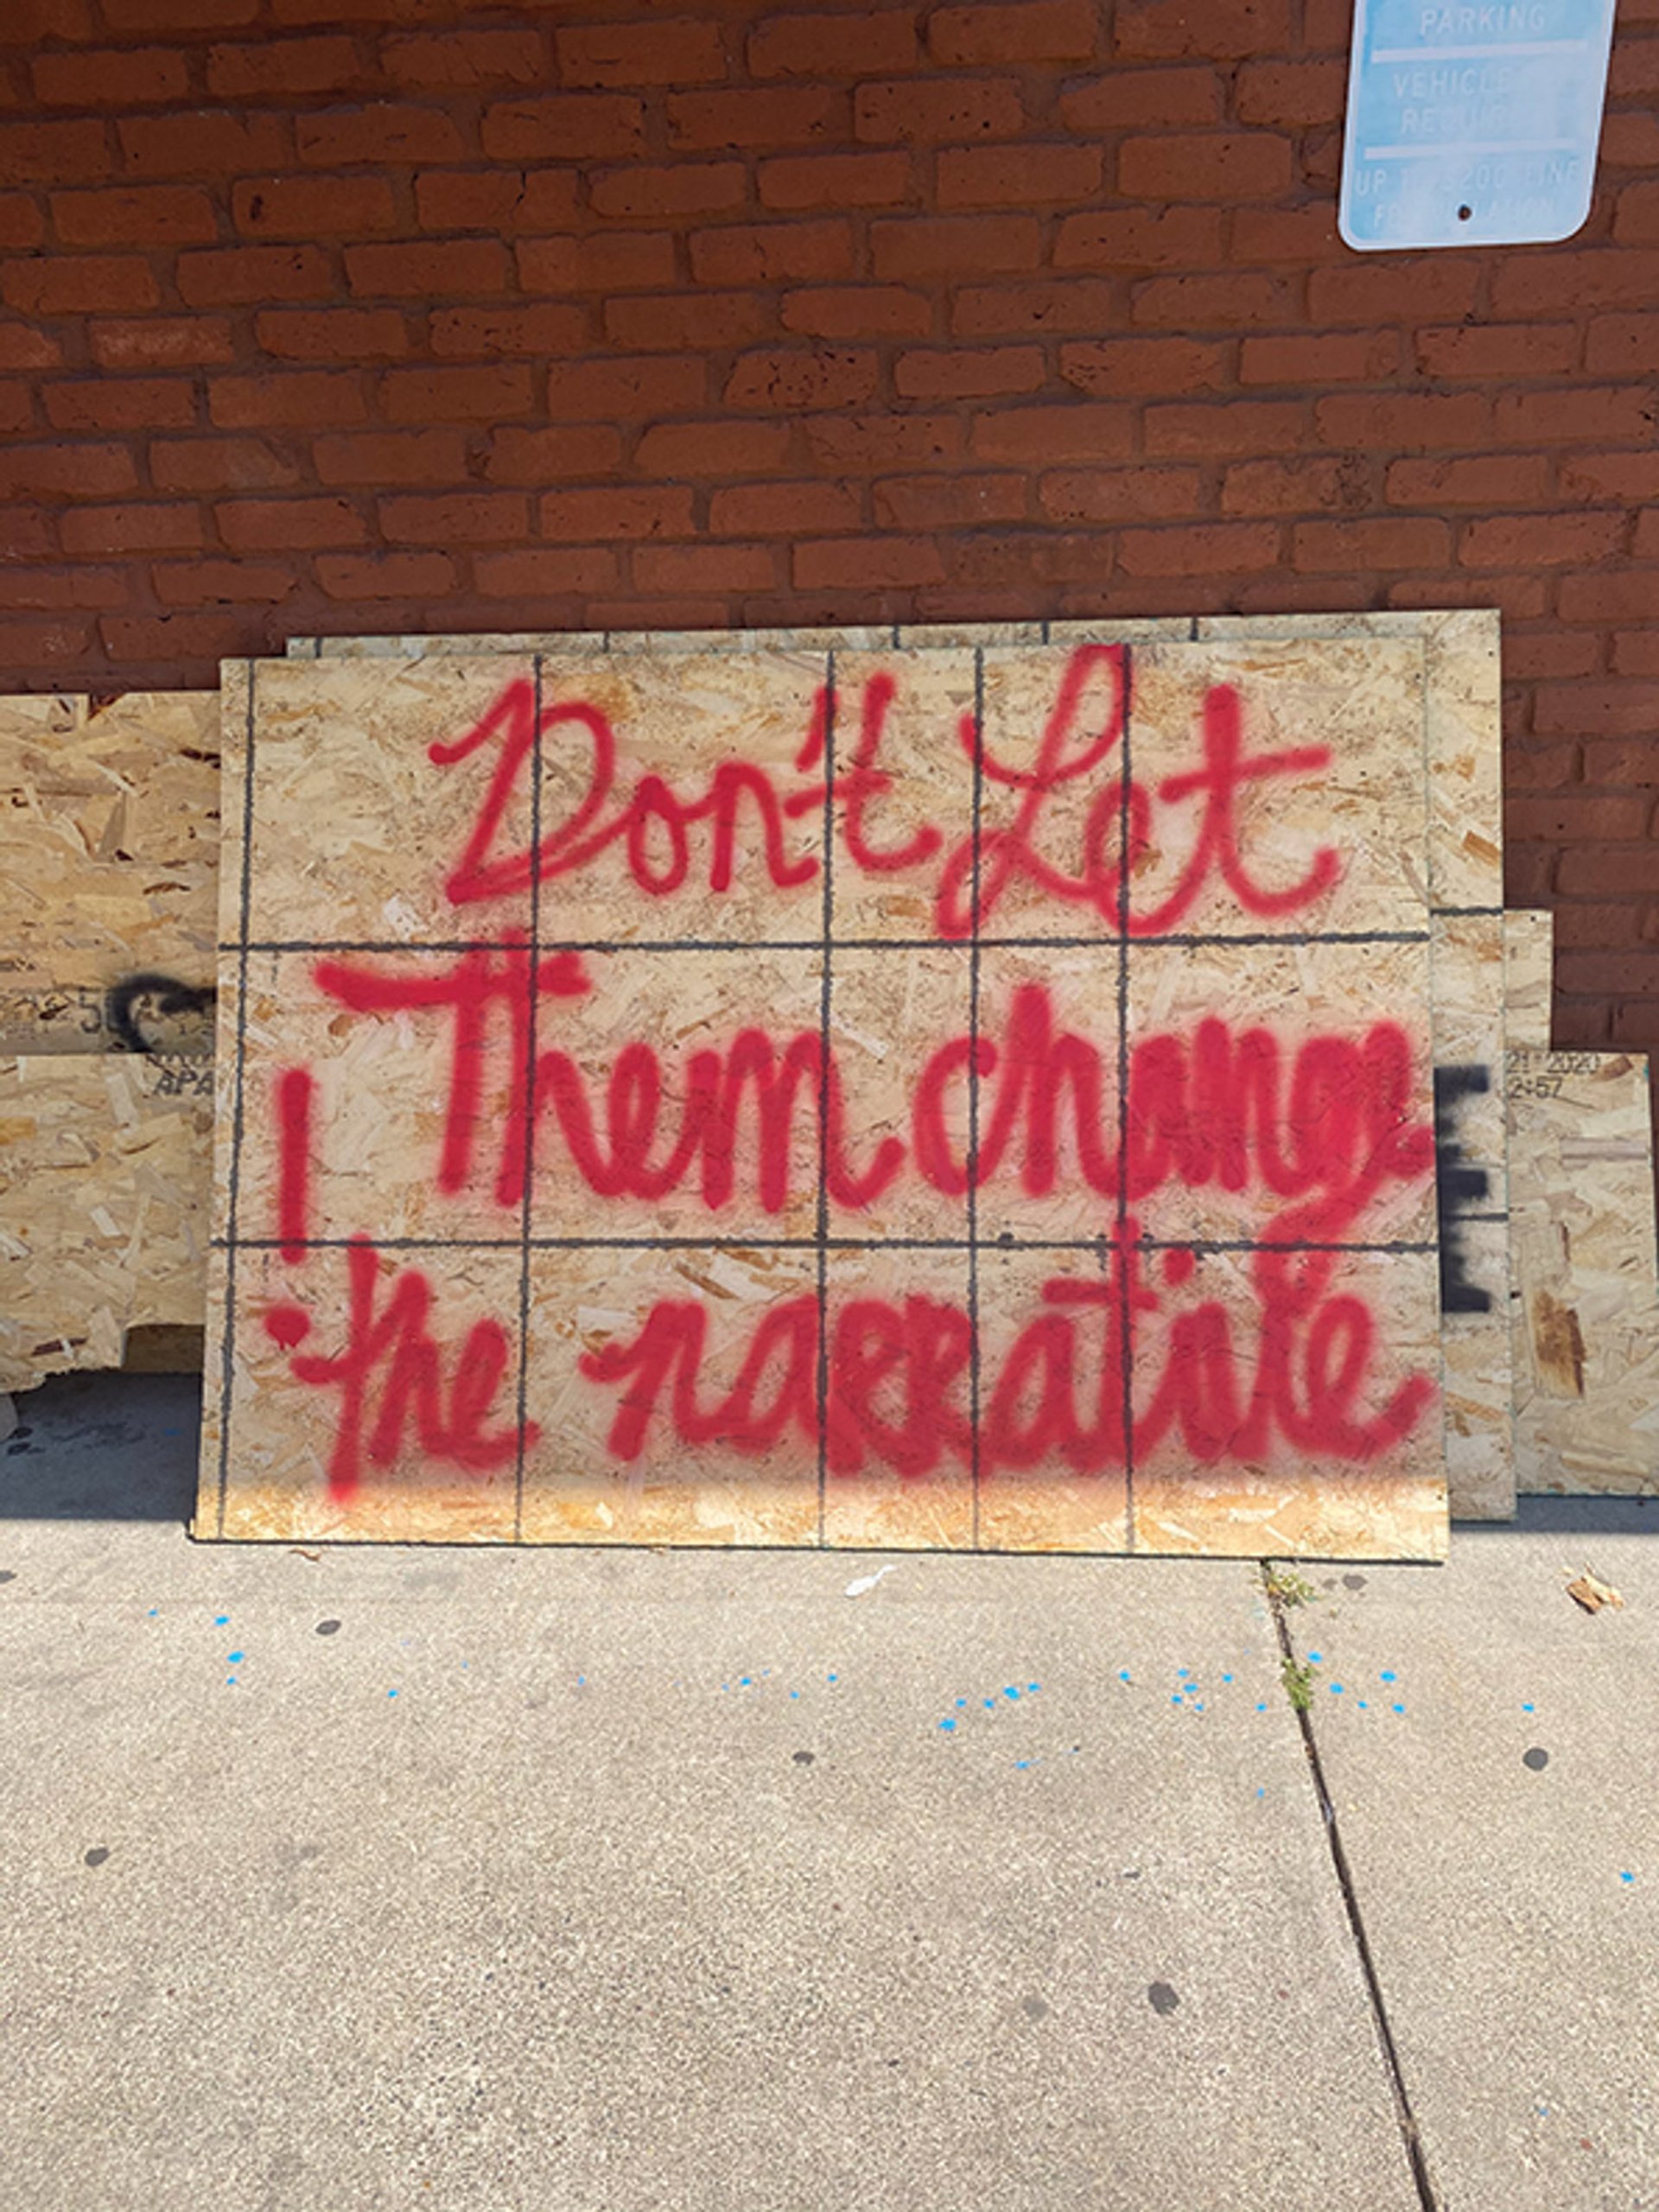 PARKING
VEHICLE
UP TO $200 FINE
Don't Let
Them change
! the narrative
APA
21 2020
2:57